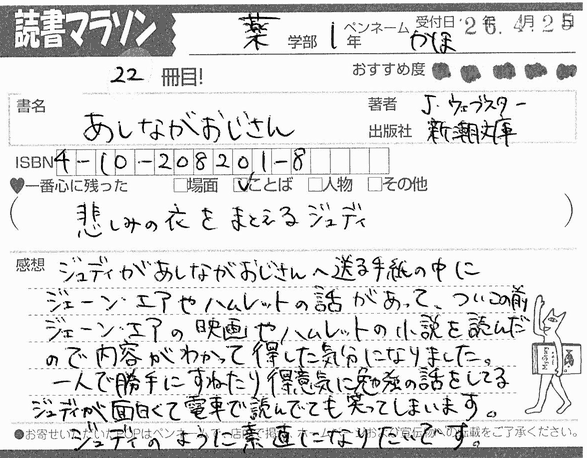 読書マラソン
薬 学部 1 年 ペンネーム かほ 受付日 '26. 4月 25日
22 冊目! おすすめ度
書名 あしながおじさん 著者 J・ウェブスター
出版社 新潮文庫
ISBN 4-10-208201-8
♥一番心に残った □場面 ☑ことば □人物 □その他
(悲しみの衣をまとえるジュディ)
感想 ジュディがあしながおじさんへ送る手紙の中に
ジェーン・エアやハムレットの話があって、ついこの前
ジェーン・エアの映画やハムレットの小説を読んだ
ので内容がわかって得した気分になりました。
一人で勝手にすねたり得意気に勉強の話をしてる
ジュディが面白くて電車で読んでても笑ってしまいます。
ジュディのように素直になりたいです。
●お寄せいただいたPOPはペンネームで店頭で掲示、ホームページおよび宣伝物への記載をご了承ください。